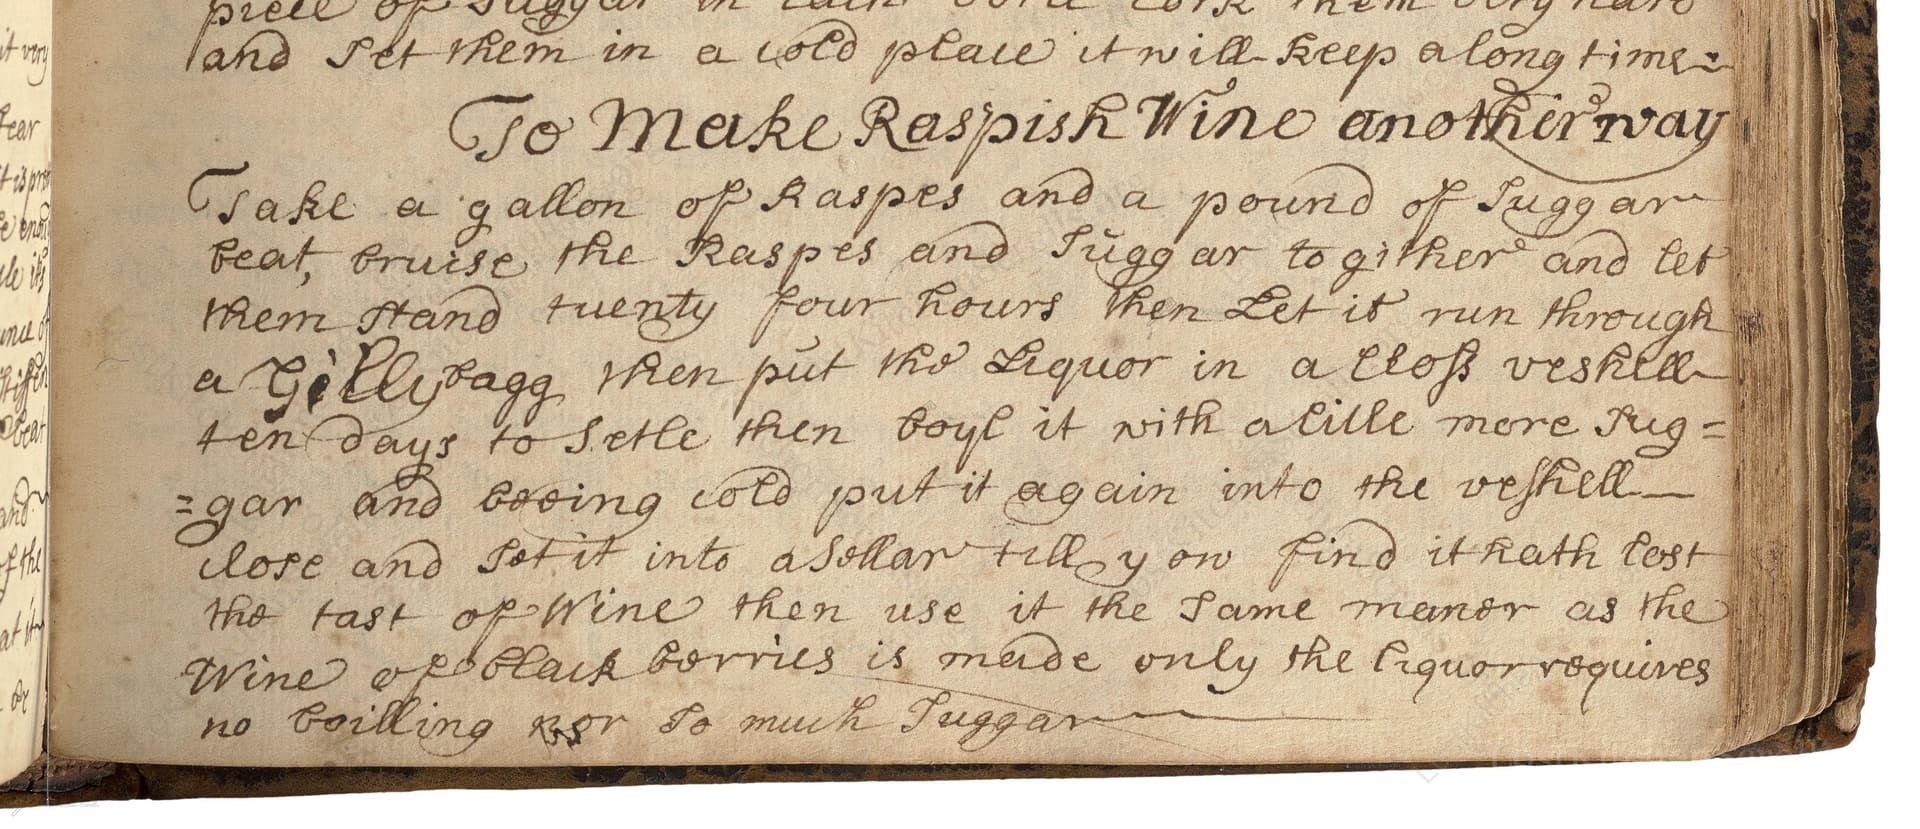 piece of Suggar in each botle cork them very hard
and Set them in a cold place it will keep a long time
To Make Raspish Wine another way
Take a gallon of Raspes and a pound of Suggar
beat, bruise the Raspes and Suggar togither and let
them stand twenty four hours then Let it run through
a Gillybagg then put the Liquor in a Closs veshell
ten days to Setle then boyl it with a litle more Sug=
=gar and beeing cold put it again into the veshell
close and Set it into a Sellar till you find it hath lost
the tast of Wine then use it the Same maner as the
Wine of black berries is made only the liquor requires
no boilling nor So much Suggar